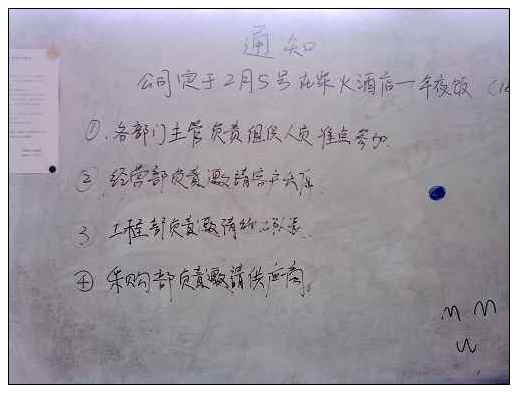 通知
公司定于2月5号在柴火酒店一年夜饭
①.各部门主管负责组织人员准点参加.
② 经营部负责邀请客户
3 工程部负责邀请
④ 采购部负责邀请供应商.